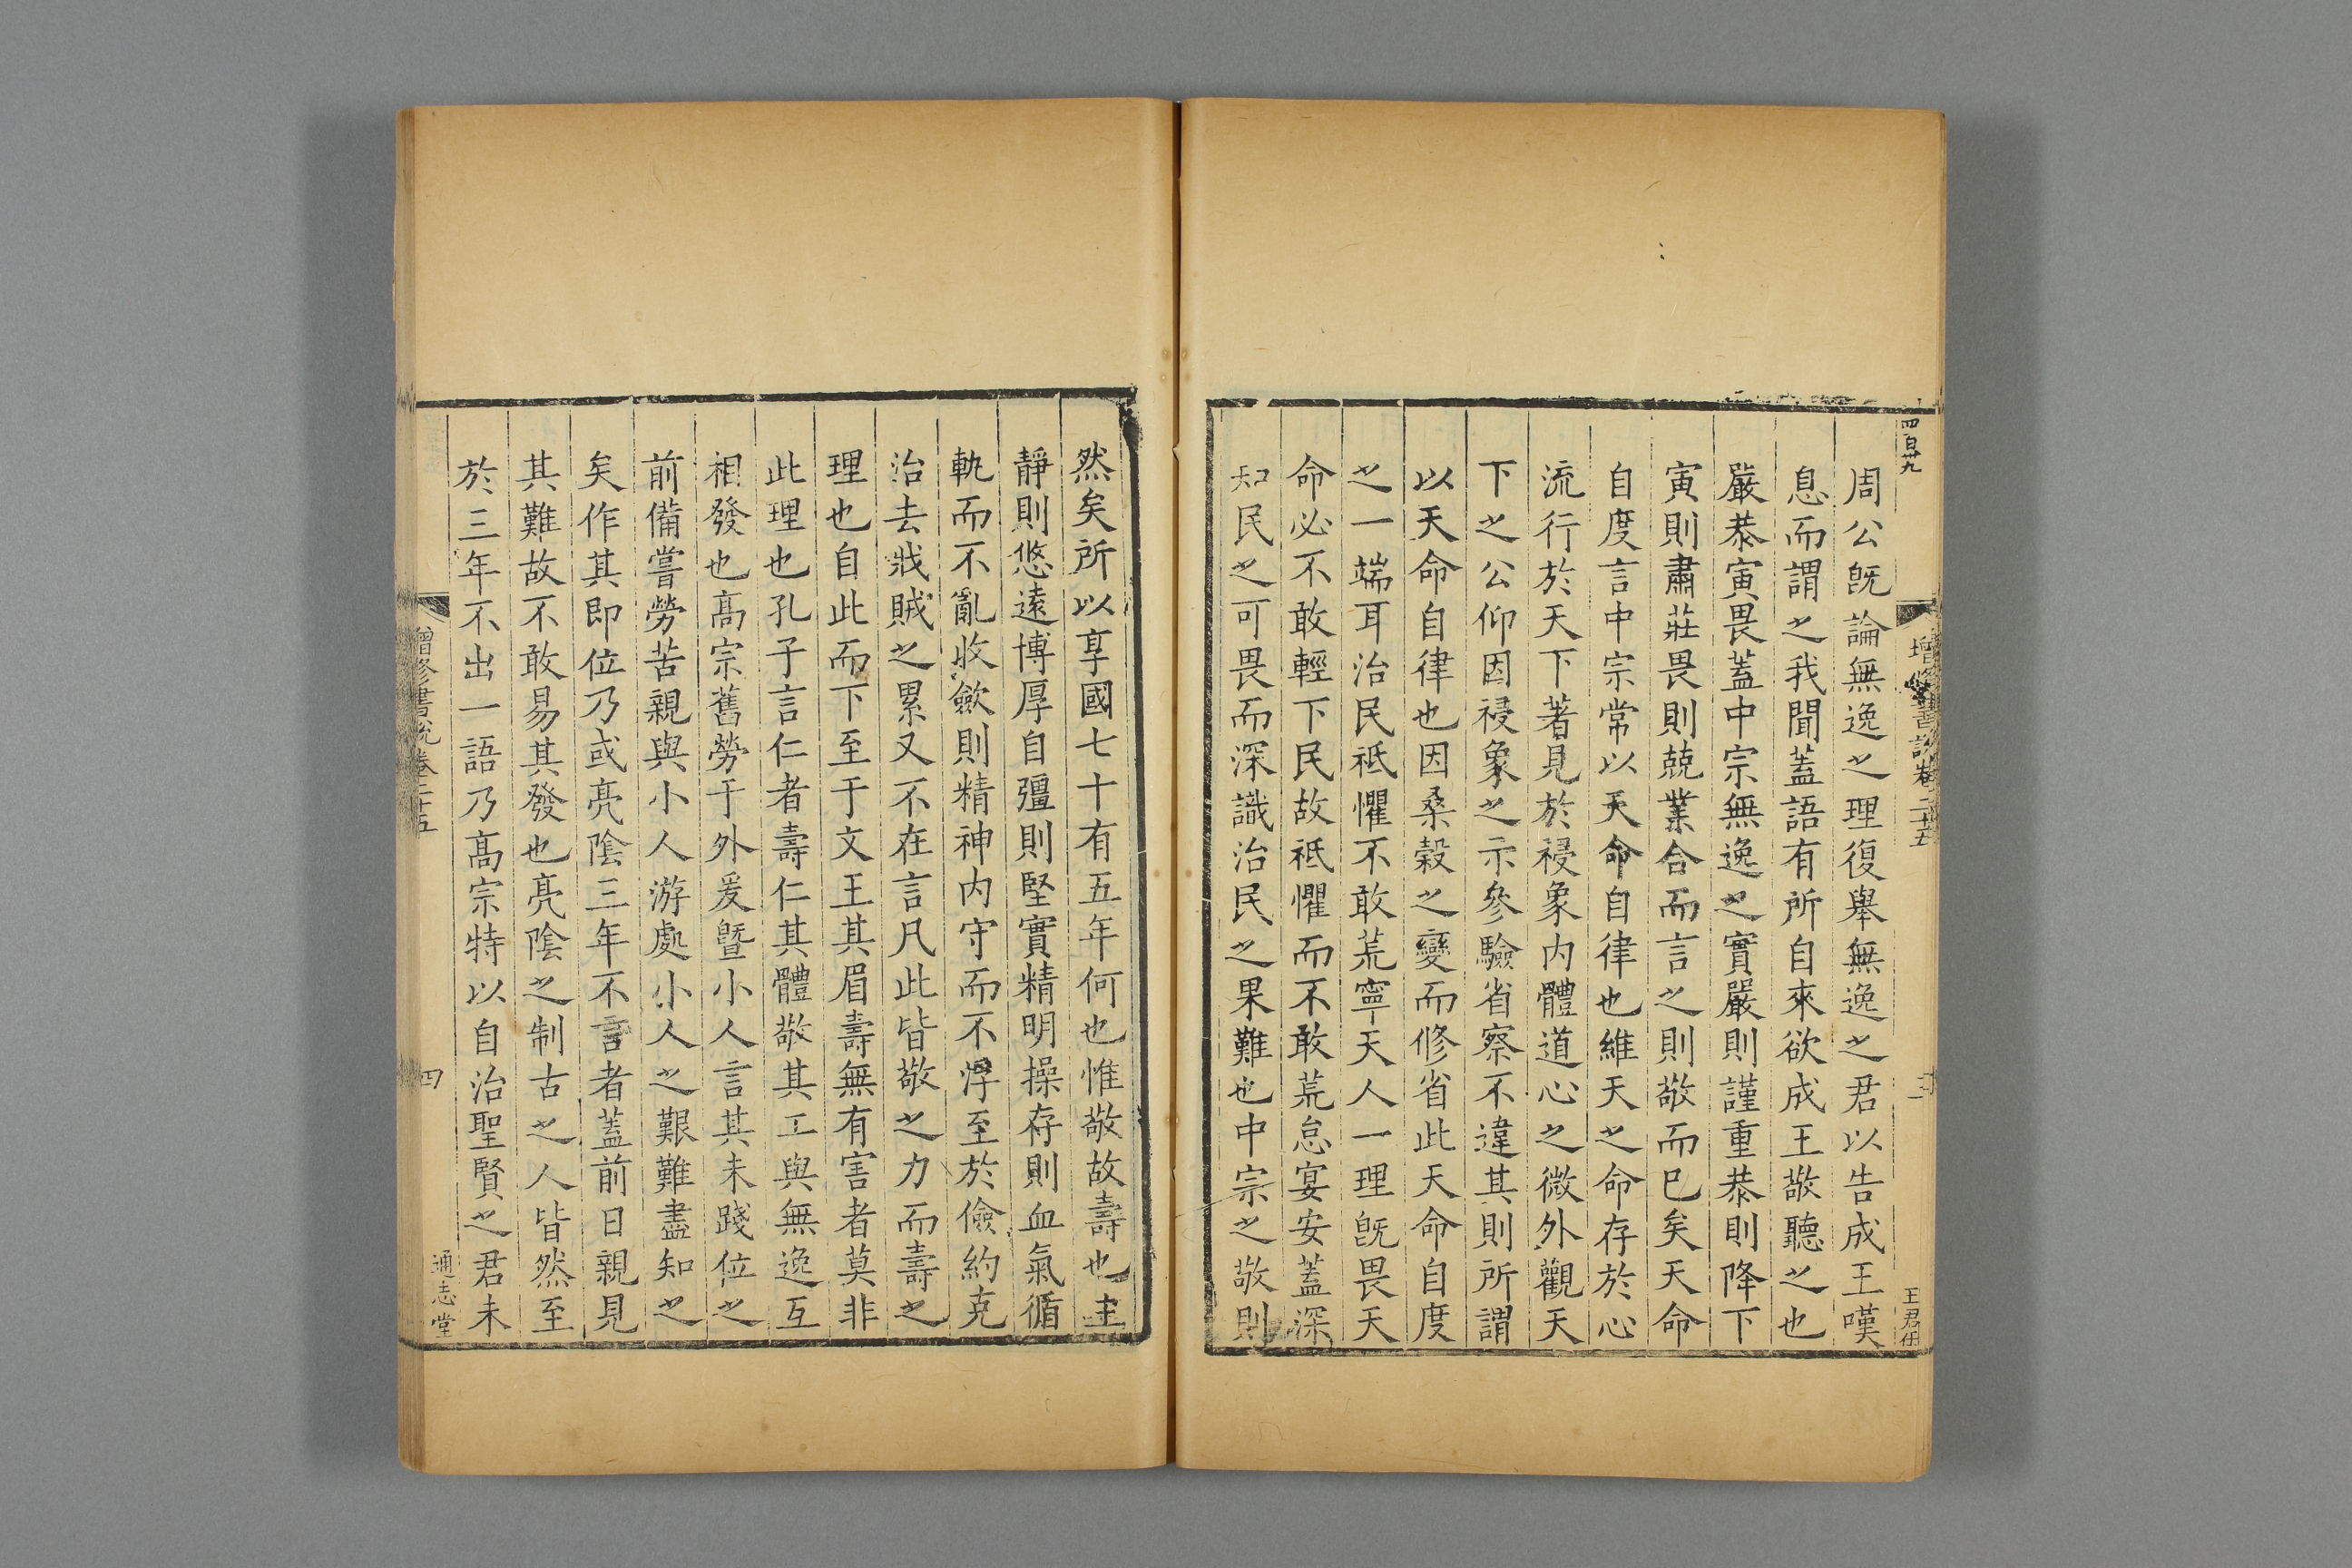 四百卅
增修書說卷二十五
三
王君任
周公旣論無逸之理復舉無逸之君以告成王嘆
息而謂之我聞蓋語有所自來欲成王敬聽之也
嚴恭寅畏蓋中宗無逸之實嚴則謹重恭則降下
寅則肅莊畏則兢業合而言之則敬而已矣天命
自度言中宗常以天命自律也維天之命存於心
流行於天下著見於祲象内體道心之微外觀天
下之公仰因祲象之示參驗省察不違其則所謂
以天命自律也因桑榖之變而修省此天命自度
之一端耳治民祗懼不敢荒寧天人一理旣畏天
命必不敢輕下民故祗懼而不敢荒怠宴安蓋深
知民之可畏而深識治民之果難也中宗之敬則
然矣所以享國七十有五年何也惟敬故壽也主
靜則悠遠博厚自彊則堅實精明操存則血氣循
軌而不亂收斂則精神内守而不浮至於儉約克
治去戕賊之累又不在言凡此皆敬之力而壽之
理也自此而下至于文王其眉壽無有害者莫非
此理也孔子言仁者壽仁其體敬其工與無逸互
相發也高宗舊勞于外爰曁小人言其未踐位之
前備嘗勞苦親與小人游處小人之艱難盡知之
矣作其即位乃或亮陰三年不言者蓋前日親見
其難故不敢易其發也亮陰之制古之人皆然至
於三年不出一語乃高宗特以自治聖賢之君未
增修書說卷二十五
四
通志堂